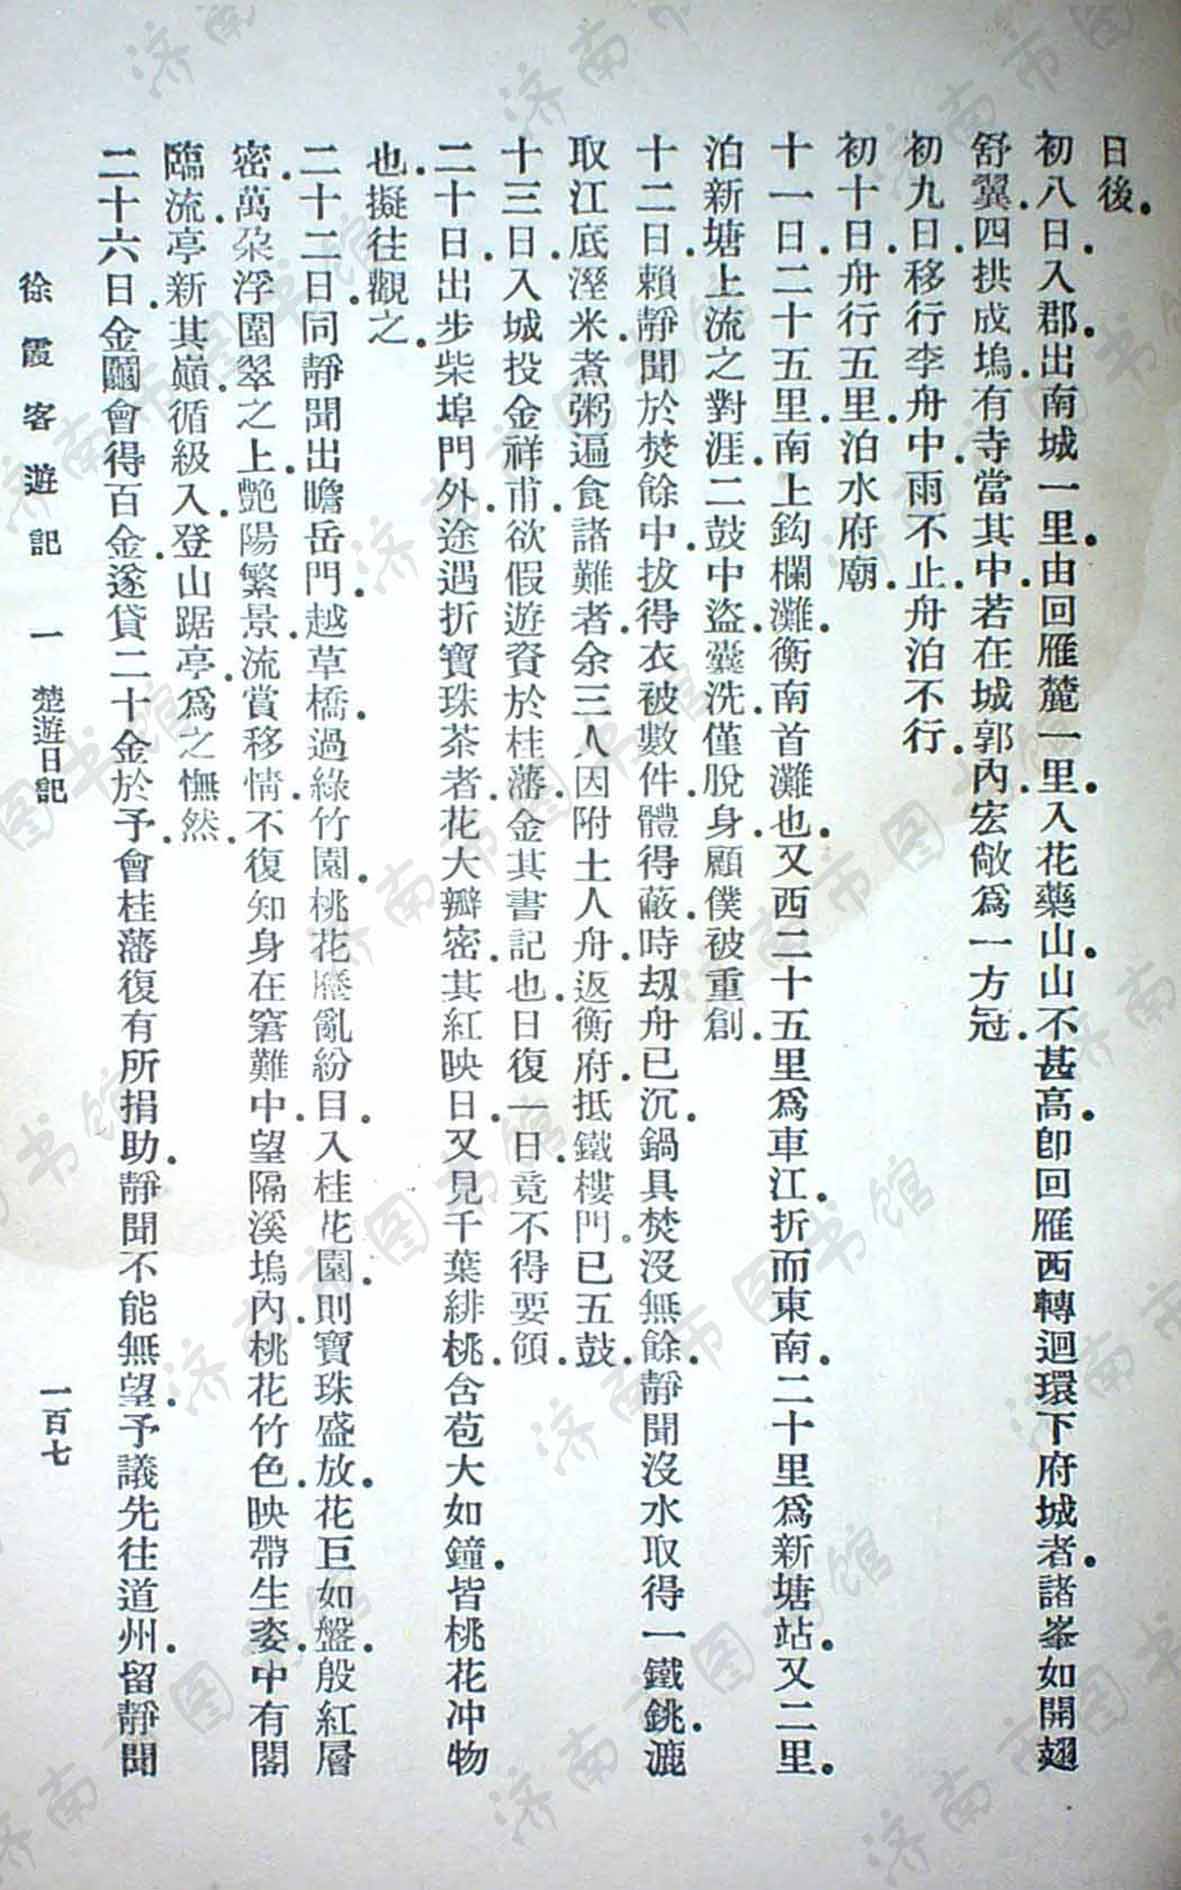 日後．
初八日．入郡．出南城一里．由回雁麓一里．入花藥山．山不甚高．卽回雁西轉迴環下府城者．諸峯如開翅
舒翼．四拱成塢．有寺當其中．若在城郭內．宏敞爲一方冠．
初九日．移行李舟中．雨不止．舟泊不行．
初十日．舟行五里．泊水府廟．
十一日．二十五里．南上鈎欄灘．衡南首灘也．又西二十五里爲車江．折而東南．二十里爲新塘站．又二里．
泊新塘上流之對涯．二鼓中盜．囊洗．僅脫身．顧僕被重創．
十二日．賴靜聞於焚餘中．拔得衣被數件．體得蔽．時刼舟已沉．鍋具焚沒無餘．靜聞沒水取得一鐵銚．漉
取江底溼米．煮粥遍食諸難者．余三人因附土人舟．返衡府．抵鐵樓門。已五鼓．
十三日．入城投金祥甫．欲假遊資於桂藩．金其書記也．日復一日．竟不得要領．
二十日．出步柴埠門外．途遇折寶珠茶者．花大瓣密．其紅映日．又見千葉緋桃．含苞大如鐘．皆桃花冲物
也．擬往觀之．
二十二日．同靜聞出瞻岳門．越草橋．過綠竹園．桃花歷亂紛目．入桂花園．則寶珠盛放．花巨如盤．殷紅層
密．萬朶浮圍翠之上．艷陽繁景．流賞移情．不復知身在窘難中．望隔溪塢內．桃花竹色．映帶生姿．中有閣
臨流．亭新其巔．循級入．登山踞亭．爲之憮然．
二十六日．金鬮會得百金．遂貸二十金於予．會桂藩復有所捐助．靜聞不能無望．予議先往道州．留靜聞
徐霞客遊記 一 楚遊日記 一百七
济南市图书馆